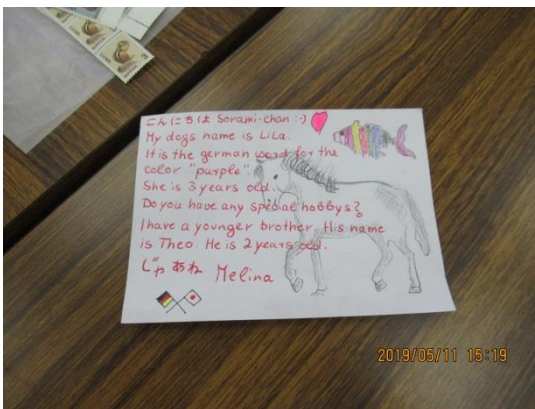 こんにちは Sorami-chan :-)
My dogs name is LiLa.
It is the german word for the
color "purple".
She is 3 years old.
Do you have any special hobbys?
I have a younger brother. His name
is Theo. He is 2 years old.
じゃあね Melina
2019/05/11 15:19